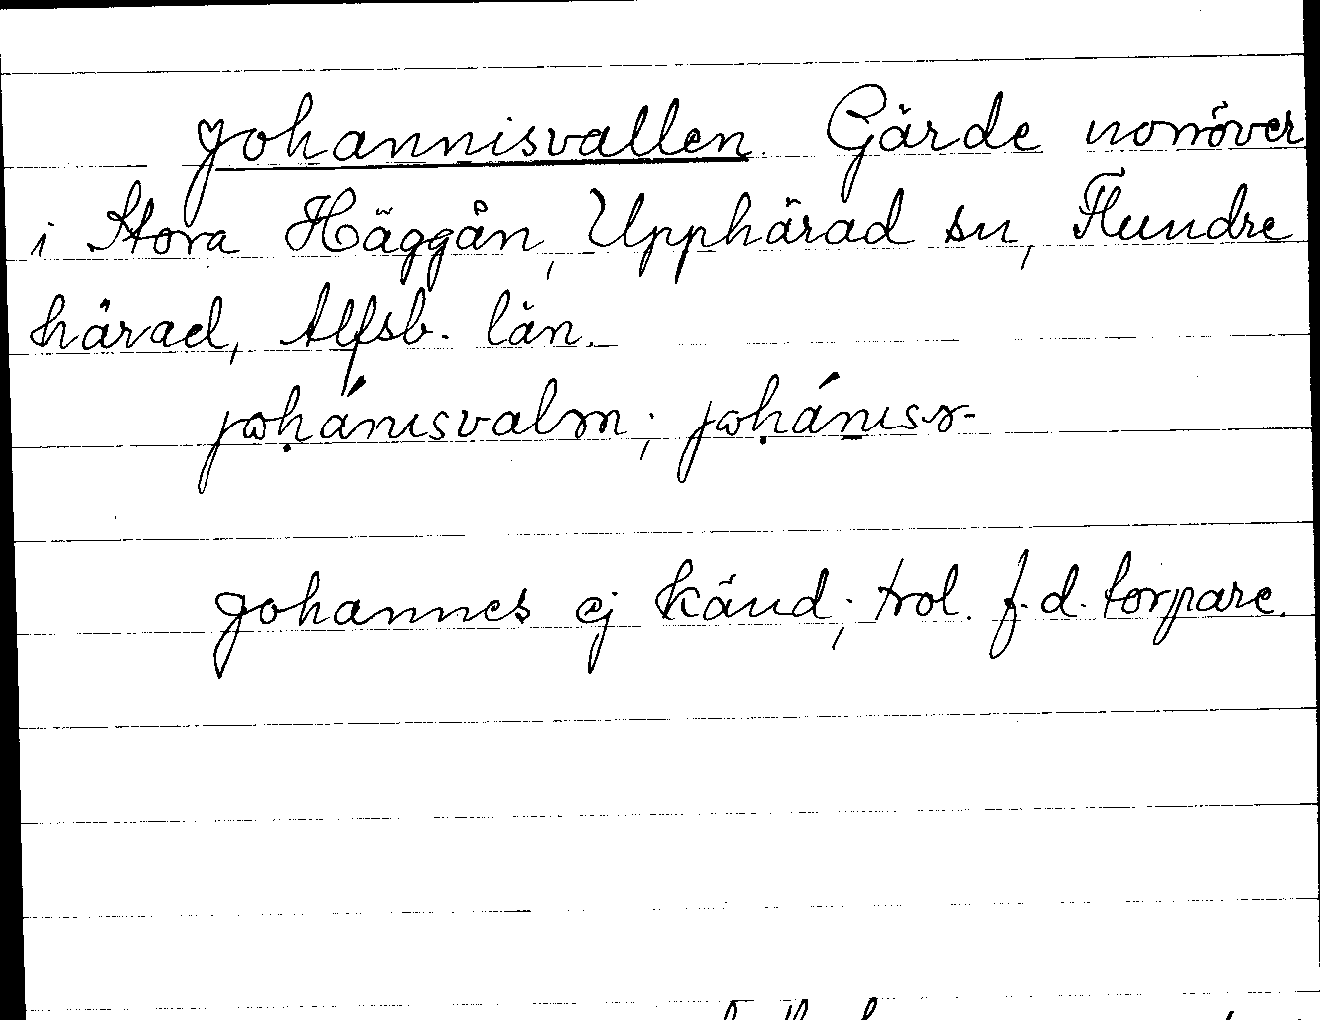 Johannisvallen. Gärde norröver
i Stora Häggån, Upphärad sn, Flundre
härad, Älfsb. län.
johánısvalm; johánıss-
Johannes ej känd; trol. f.d. torpare.